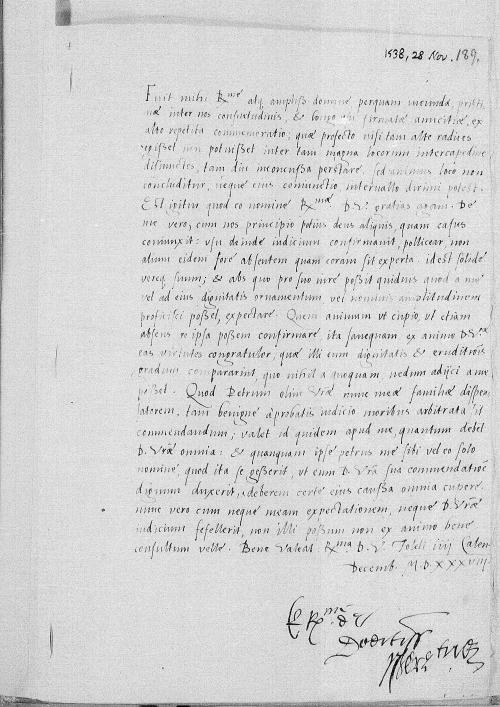 1538, 28 Nov. 189.
Fuit mihi R.me atq. ampliss domine perquam iucunda, pristi
nae inter nos consuetudinis, & longo usu firmatae amicitiae, ex
alto repetita commemoratio; quae profecto nisi tam alte radices
egisset non potuisset inter tam magna locorum intercapedine
disiunctos, tam diu inconcussa perstare, sed animus loco non
concluditur, neque eius coniunctio, intervallo dirimi potest.
Est igitur quod eo nomine R.mae D. V. gratias agam. De
me vero, cum nos principio potius deus aliquis, quam casus
coniunxit: usu deinde iudicium confirmavit, polliceor, non
alium eidem fore absentem quam coram sit experta. idest solide
vereq. suum; & abs quo pro suo iure possit quiduis quod a me
vel ad eius dignitatis ornamentum, vel nominis amplitudinem
proficisci posset, expectare. Quem animum ut cupio, ut etiam
absens re ipsa possem confirmare ita sanequam ex animo D. V.rae
eas virtutes congratulor; quae illi eum dignitatis & eruditionis
gradum compararint, quo nihil a quoquam, nedum adijci a me
posset. Quod Petrum olim V.rae nunc meae familiae dispen
satorem, tam benigne a probatis iudicio moribus arbitrata sit
commendandum; valet id quidem apud me, quantum debet
D. Vrae omnia: & quanquam ipse petrus me sibi vel eo solo
nomine, quod ita se gesserit, ut eum D. Vra sua commendatione
dignum duxerit, deberem certe eius caussa omnia cupere.
nunc vero cum neque meam expectationem, neque D. Vrae
iudicium fefellerit, non illi possum non ex animo bene
consultum velle. Bene Valeat R.ma D. V. Toleti iiij Calen
Decemb. M.D.XXXVIII